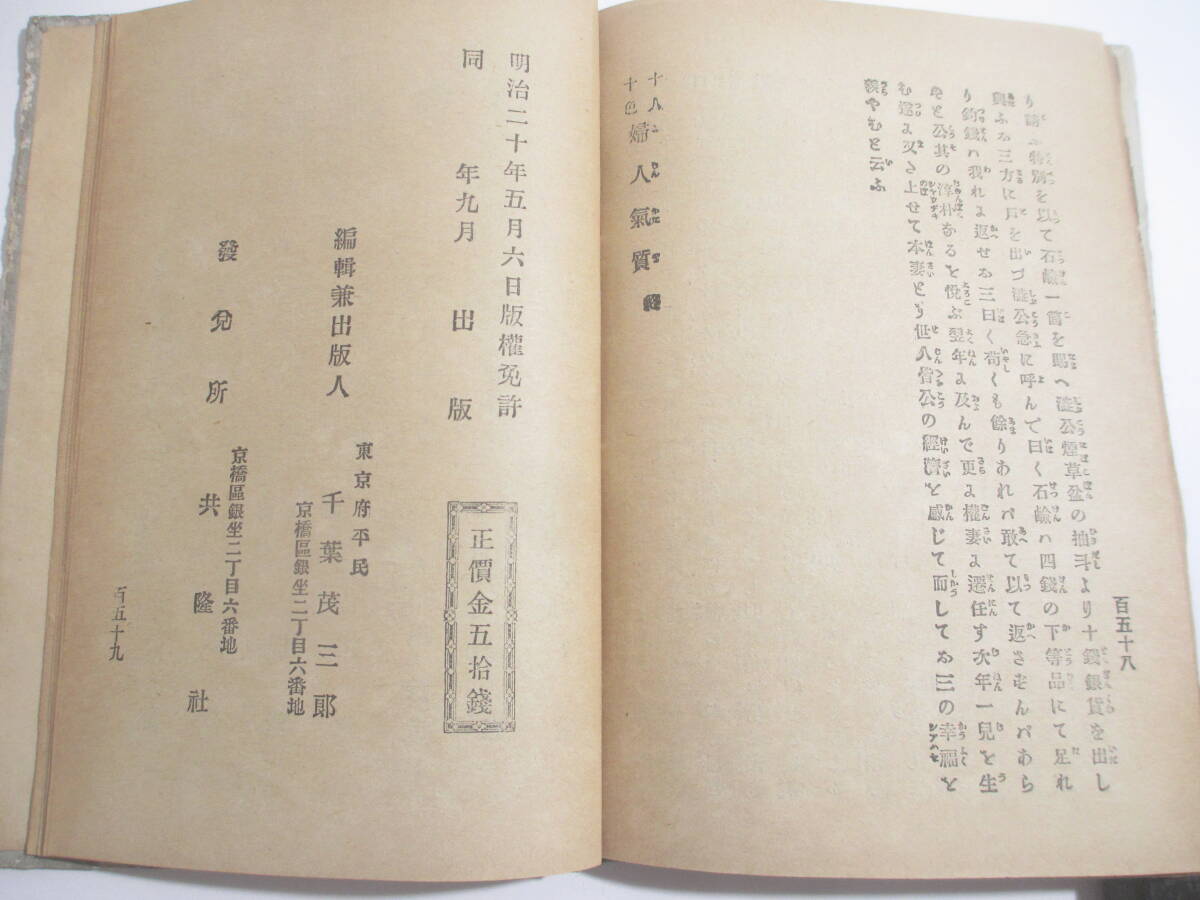 百五十八
り請ふ特別を以て石鹼一箇を賜へ漣公煙草盆の抽斗より十錢銀貨を出し
與ふお三方に戸を出づ漣公急に呼んで曰く石鹼ハ四錢の下等品にて足れ
り釣錢ハ我れに返せお三曰く苟くも餘りあれバ敢て以て返さずんバあら
ずと公其の淳朴なるを悅ぶ翌年に及んで更に權妻に遷任す次年一兒を生
む遂に又た上せて本妻とす世人皆公の經濟を感じて而してお三の幸福を
羨やむと云ふ
十人十色婦人氣質 終
明治二十年五月六日版權免許
同年九月出版
正價金五拾錢
編輯兼出版人
東京府平民
千葉茂三郎
京橋區銀坐二丁目六番地
發兌所
京橋區銀坐二丁目六番地
共隆社
百五十九